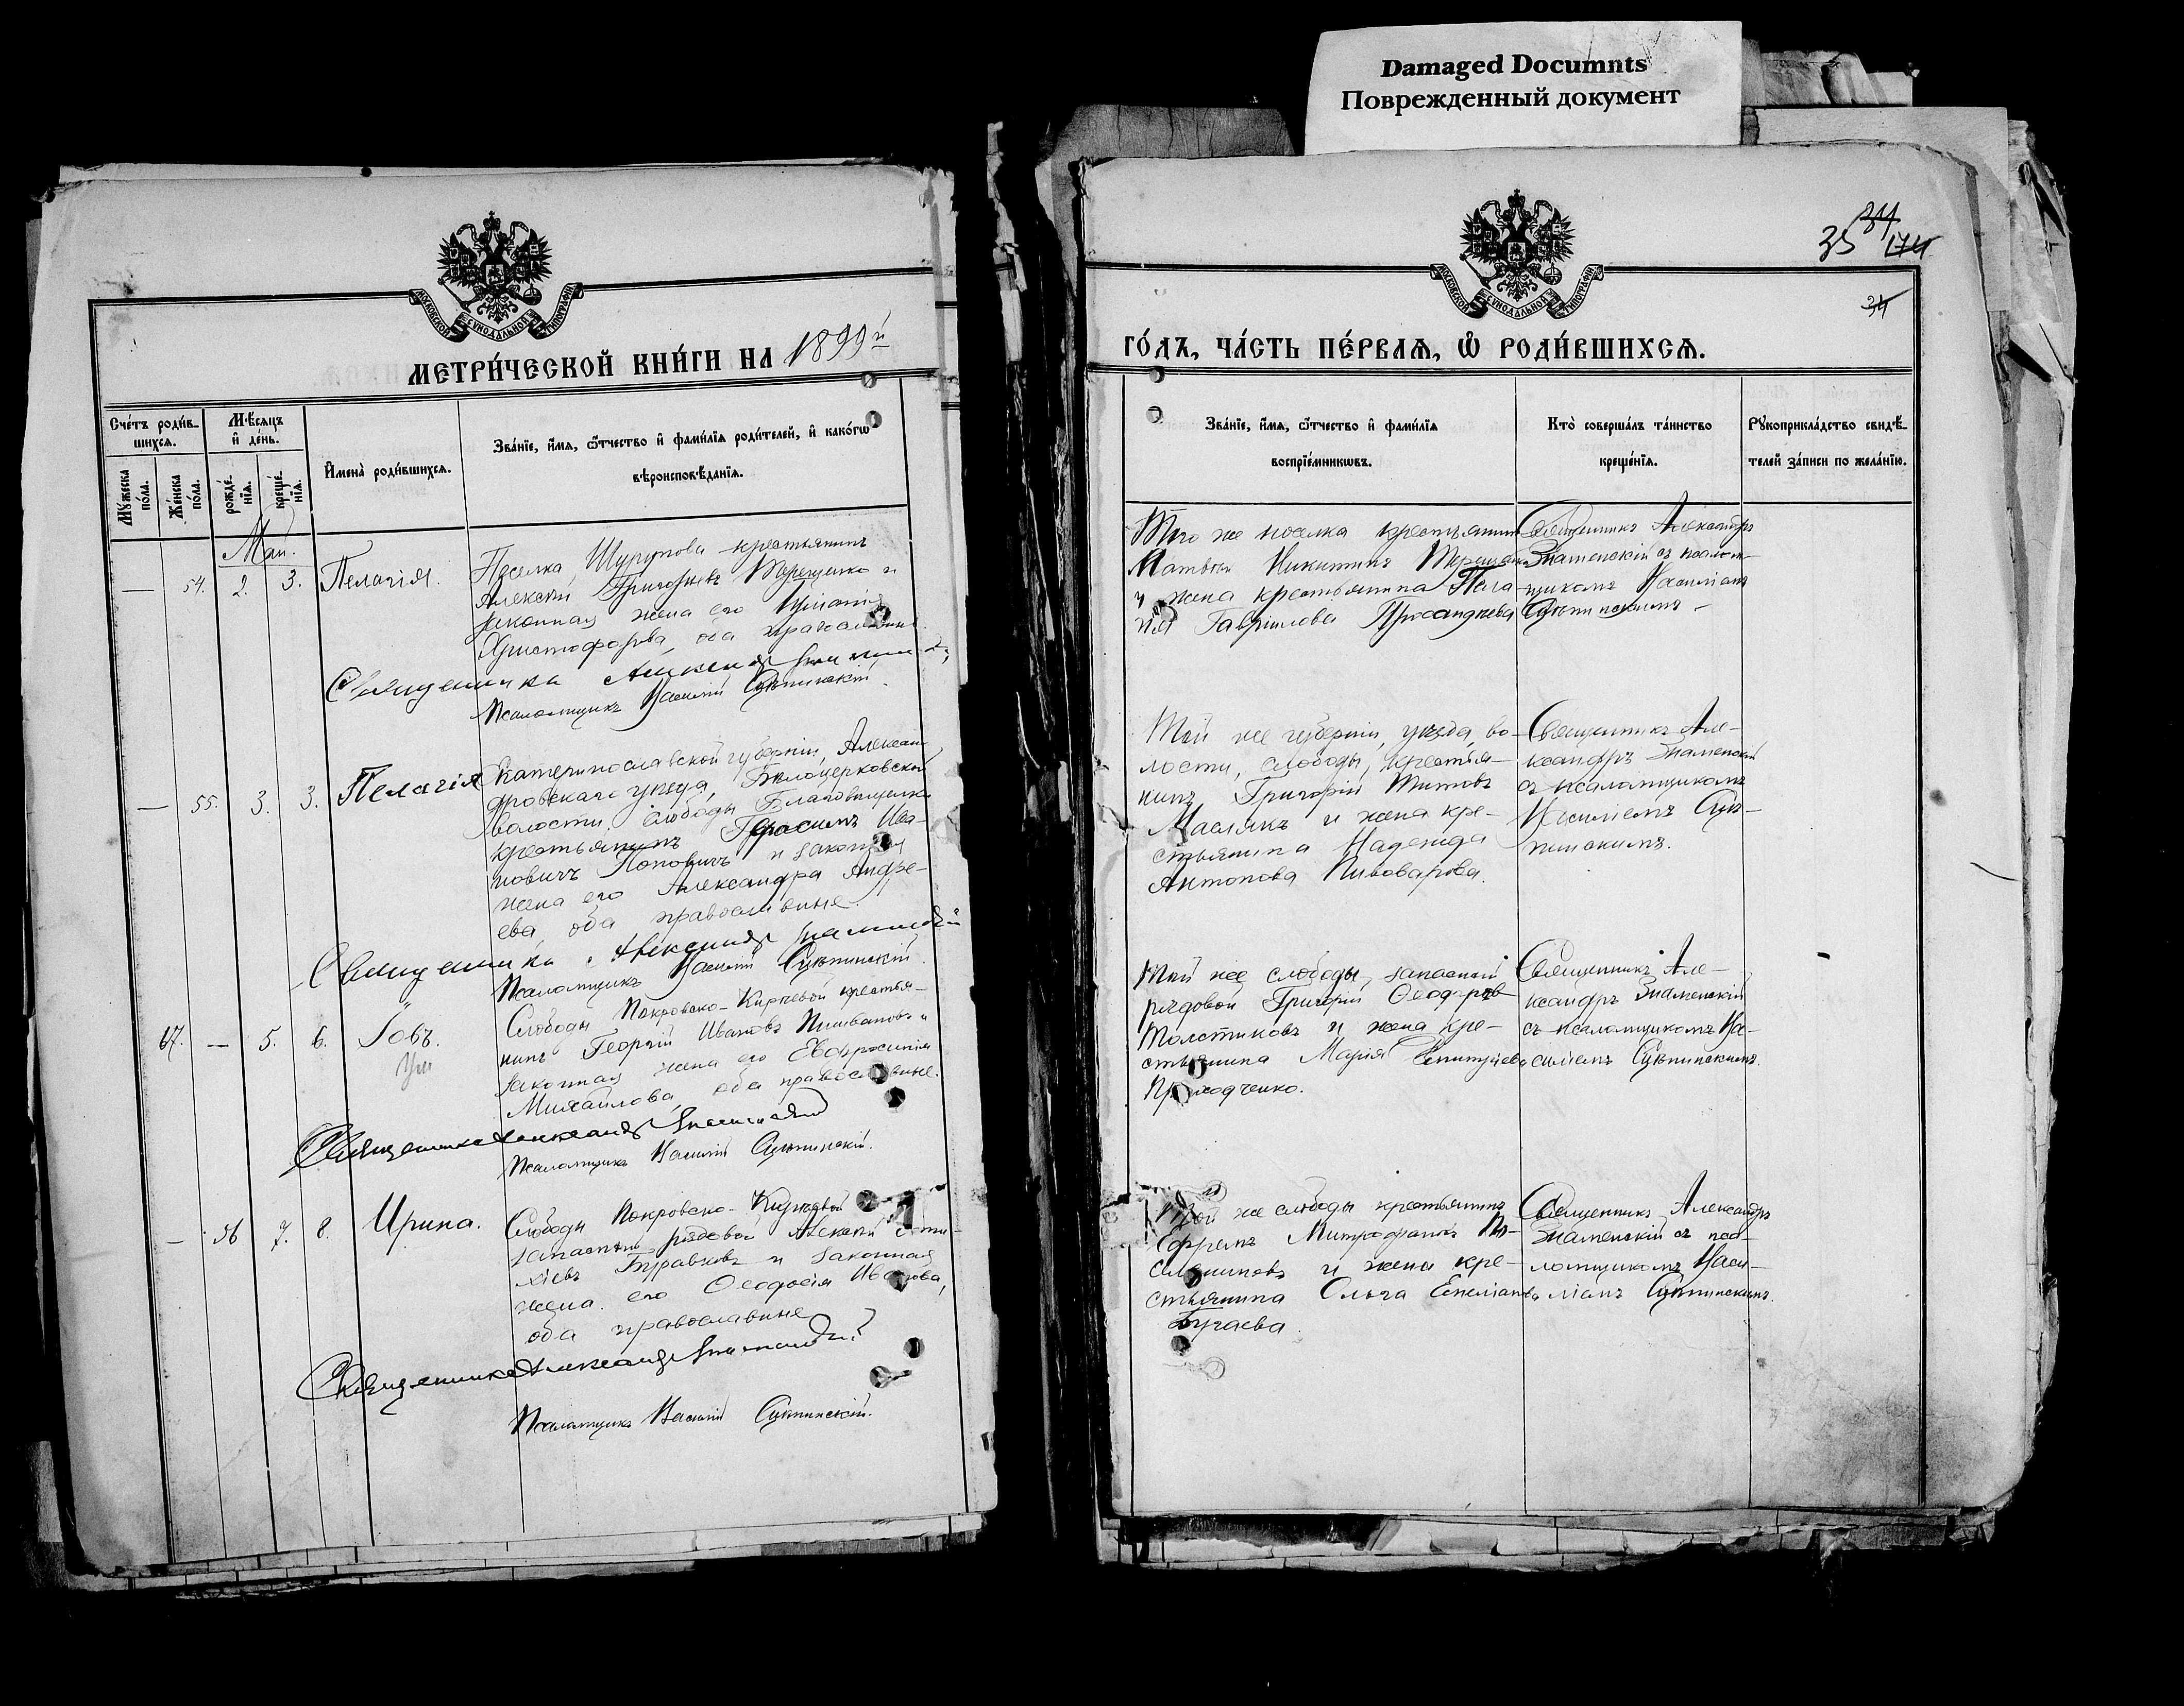 Damaged Documnts
Поврежденный документ
МОСКОВСКОЙ СУНОДАЛЬНОЙ ТИПОГРАФІИ
МЕТРИ́ЧЕСКОЙ КНИ́ГИ НА 1899й
Сче́тъ роди́в-
шихся.
Мѣ́сяцъ
и҆ де́нь.
Мꙋ́жеска
по́ла.
Же́нска
по́ла.
рожде́-
нїѧ.
креще́-
нїѧ.
И҆мена̀ роди́вшихсѧ.
Зва́нїе, и҆́мѧ, ѻ҆́тчество и҆ фами́лїѧ роди́телей, и҆ како́гѡ
вѣроисповѣ́данїѧ.
Май.
— 54. 2. 3. Пелагія.
Поселка Шурупова крестьянинъ
Алексѣй Григорьевъ Терещенко и
законная жена его
Христофорова, оба православные.
Священникъ Александръ Знаменскій
Псаломщикъ Василій
— 55. 3. 3. Пелагія
Екатеринославской губерніи, Алексан-
дровскаго уѣзда, Бѣлоцерковской
волости, слободы Благовѣщенки
крестьянинъ Герасимъ Ива-
новичъ Поповичъ и законная
жена его Александра Андре-
ева оба православные.
Священникъ Александръ Знаменскій
Псаломщикъ Василій
67. — 5. 6. Іовъ.
Слободы Покровско-Кирѣевой крестья-
нинъ Георгій Ивановъ и
законная жена его Евфросинія
Михайлова, оба православные.
Священникъ Александръ Знаменскій
Псаломщикъ Василій
— 56 7. 8. Ирина.
Слободы Покровско-Кирѣевой
запасный рядовой Алексѣй
Буравковъ и законная
жена его Ѳеодосія Иванова,
оба православные
Священникъ Александръ Знаменскій
Псаломщикъ Василій
35 34 174
34
МОСКОВСКОЙ СУНОДАЛЬНОЙ ТИПОГРАФІИ
ГО́ДЪ, ЧА́СТЬ ПЕ́РВАѦ, Ѽ РОДИ́ВШИХСѦ.
Зва́нїе, и҆́мѧ, ѻ҆́тчество и҆ фами́лїѧ
воспрїе́мникѡвъ.
Кто̀ соверша́лъ та́инство
креще́нїѧ.
Рꙋкоприкла́дство свидѣ́-
телей за́писи по жела́нїю.
Того же поселка крестьянинъ
Матвѣй Никитинъ Терещенко
и жена крестьянина Пела
гія Гаврiилова
Священникъ Александръ
Знаменскій съ псалом-
щикомъ Василіемъ
Той же губерніи, уѣзда, во-
лости, слободы, крестья-
нинъ Григорій Титовъ
Маслякъ и жена кре-
стьянина Надежда
Антонова Пивоварова.
Священникъ Але-
ксандръ Знаменскій
съ псаломщикомъ
Василіемъ
Той же слободы, запасный
рядовой Григорій Ѳеодоровъ
Толстиковъ и жена кре-
стьянина Марія
Приходченко.
Священникъ Але-
ксандръ Знаменскій
съ псаломщикомъ Ва-
силіемъ
Той же слободы крестьянинъ
Ефремъ Митрофановъ
и жена кре-
стьянина Ольга Емеліанова
Бугаева.
Священникъ Александръ
Знаменскій съ пса-
ломщикомъ Васи-
ліемъ